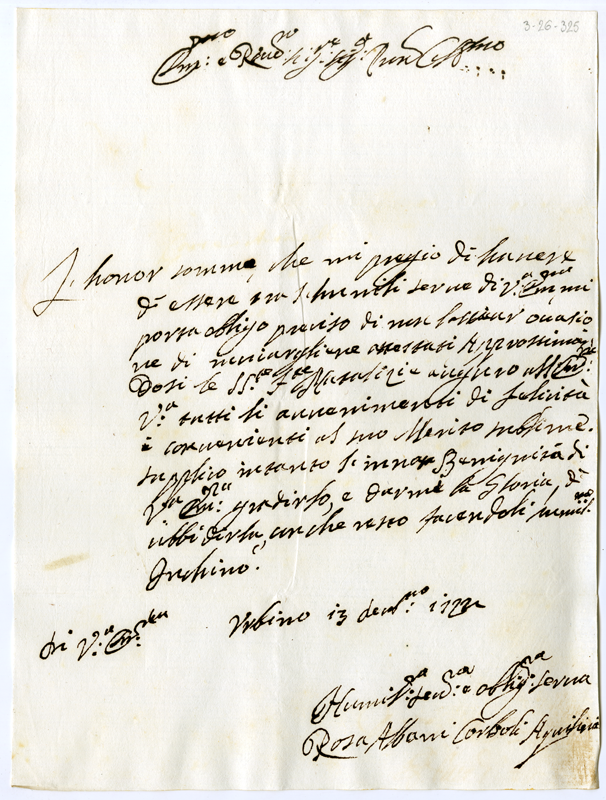 3-26-325
Em.mo e Rev.mo Sig.re Sig.re Pron Col.mo
L'honor sommo, che mi pregio di havere
d'essere tra l'humili serve di V.a Em.za mi
porta obligo preciso di non lasciar ocasio
ne di
dosi le SS.te F.te Natalizie auguro all'Em.za
V.a tutti li avvenimenti di felicità
e convenienti al suo Merito sublime.
supplico intanto l'innata Benignità di
V.a Em.za gradirlo, e darmi la Gloria di
ubbidirla, anche resto facendoli humil.mo
Inchino.
di V.a Em.za Urbino 13 decbr.e
Humil.ma dev.ma e oblig.ma serva
Rosa Albani Corboli Aquilina